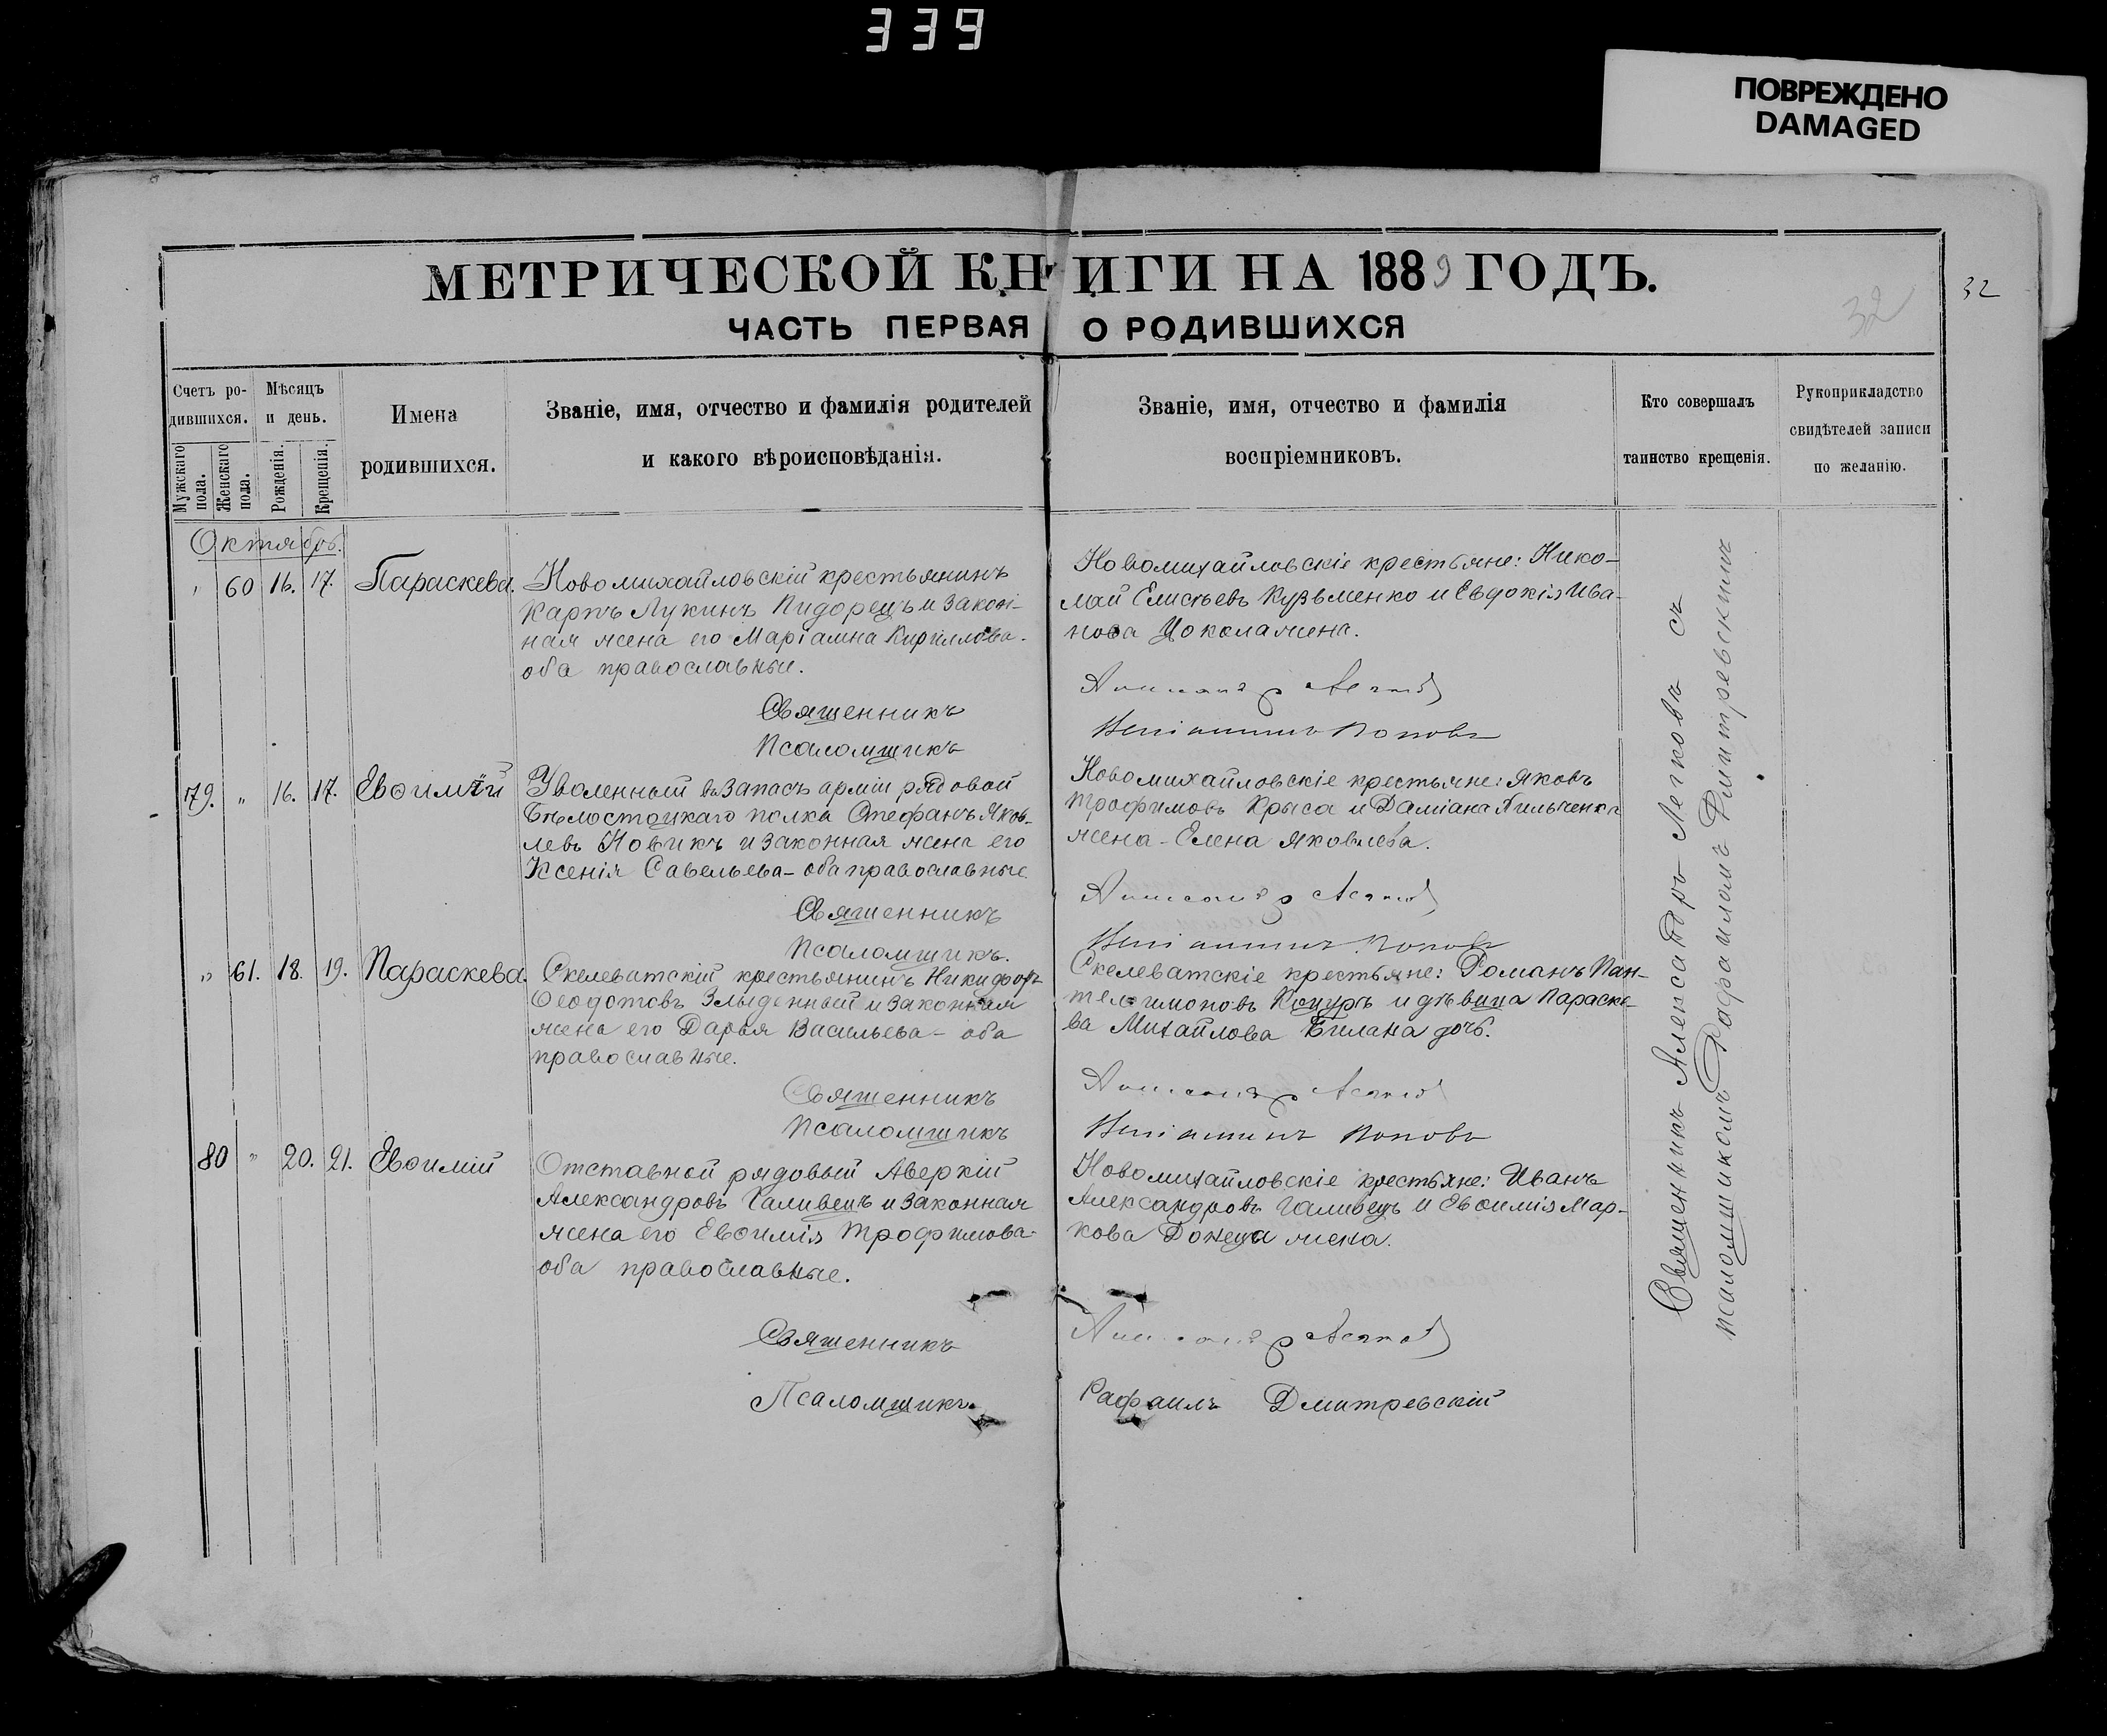 339
ПОВРЕЖДЕНО
DAMAGED
МЕТРИЧЕСКОЙ КНИГИ НА 1889 ГОДЪ.
32
32
ЧАСТЬ ПЕРВАЯ О РОДИВШИХСЯ
Счетъ ро-
дившихся.
Мужскаго
пола.
Женскаго
пола.
Мѣсяцъ
и день.
Рожденія.
Крещенія.
Имена
родившихся.
Званіе, имя, отчество и фамилія родителей
и какого вѣроисповѣданія.
Званіе, имя, отчество и фамилія
воспріемниковъ.
Кто совершалъ
таинство крещенія.
Рукоприкладство
свидѣтелей записи
по желанію.
Октябрь.
" 60 16. 17. Параскева.
Новомихайловскій крестьянинъ
Карпъ Лукинъ Пидорецъ и закон-
ная жена его Маріамна Кириллова.
оба православные.
Священникъ
Псаломщикъ
Новомихайловскіе крестьяне: Нико-
лай Елисѣевъ Кузьменко и Евдокія Ива-
нова Цокола жена.
Александр Легков
Веніаминъ Поповъ
79. " 16. 17. Евѳимій
Уволенной въ запасъ арміи рядовой
Бѣлостоцкаго полка Стефанъ Яков-
левъ Новикъ и законная жена его
Ксенія Савельева - оба православные
Священникъ
Псаломщикъ.
Новомихайловскіе крестьяне: Яковъ
Трофимовъ Крыса и Даміана Пильченка
жена - Елена Яковлева.
Александр Легков
Веніаминъ Поповъ
" 61. 18. 19. Параскева.
Скелеватскій крестьянинъ Никифоръ
Ѳеодотовъ Злыденный и законная
жена его Дарья Васильева - оба
православные.
Священникъ
Псаломщикъ
Скелеватскіе крестьяне: Романъ Пан-
телеимоновъ Коцуръ и дѣвица Параске-
ва Михайлова Билана дочь.
Александр Легков
Веніаминъ Поповъ
80 " 20. 21. Евѳимій
Отставной рядовый Аверкій
Александровъ Галивецъ и законная
жена его Евѳимія Трофимова-
оба православные.
Священникъ
Псаломщикъ
Новомихайловскіе крестьяне: Иванъ
Александровъ Галивецъ и Евѳимія Мар-
кова Донеца жена.
Александр Легков
Рафаилъ Дмитревскій
Священникъ Александръ Легковъ съ
псаломщикомъ Рафаиломъ Дмитревскимъ